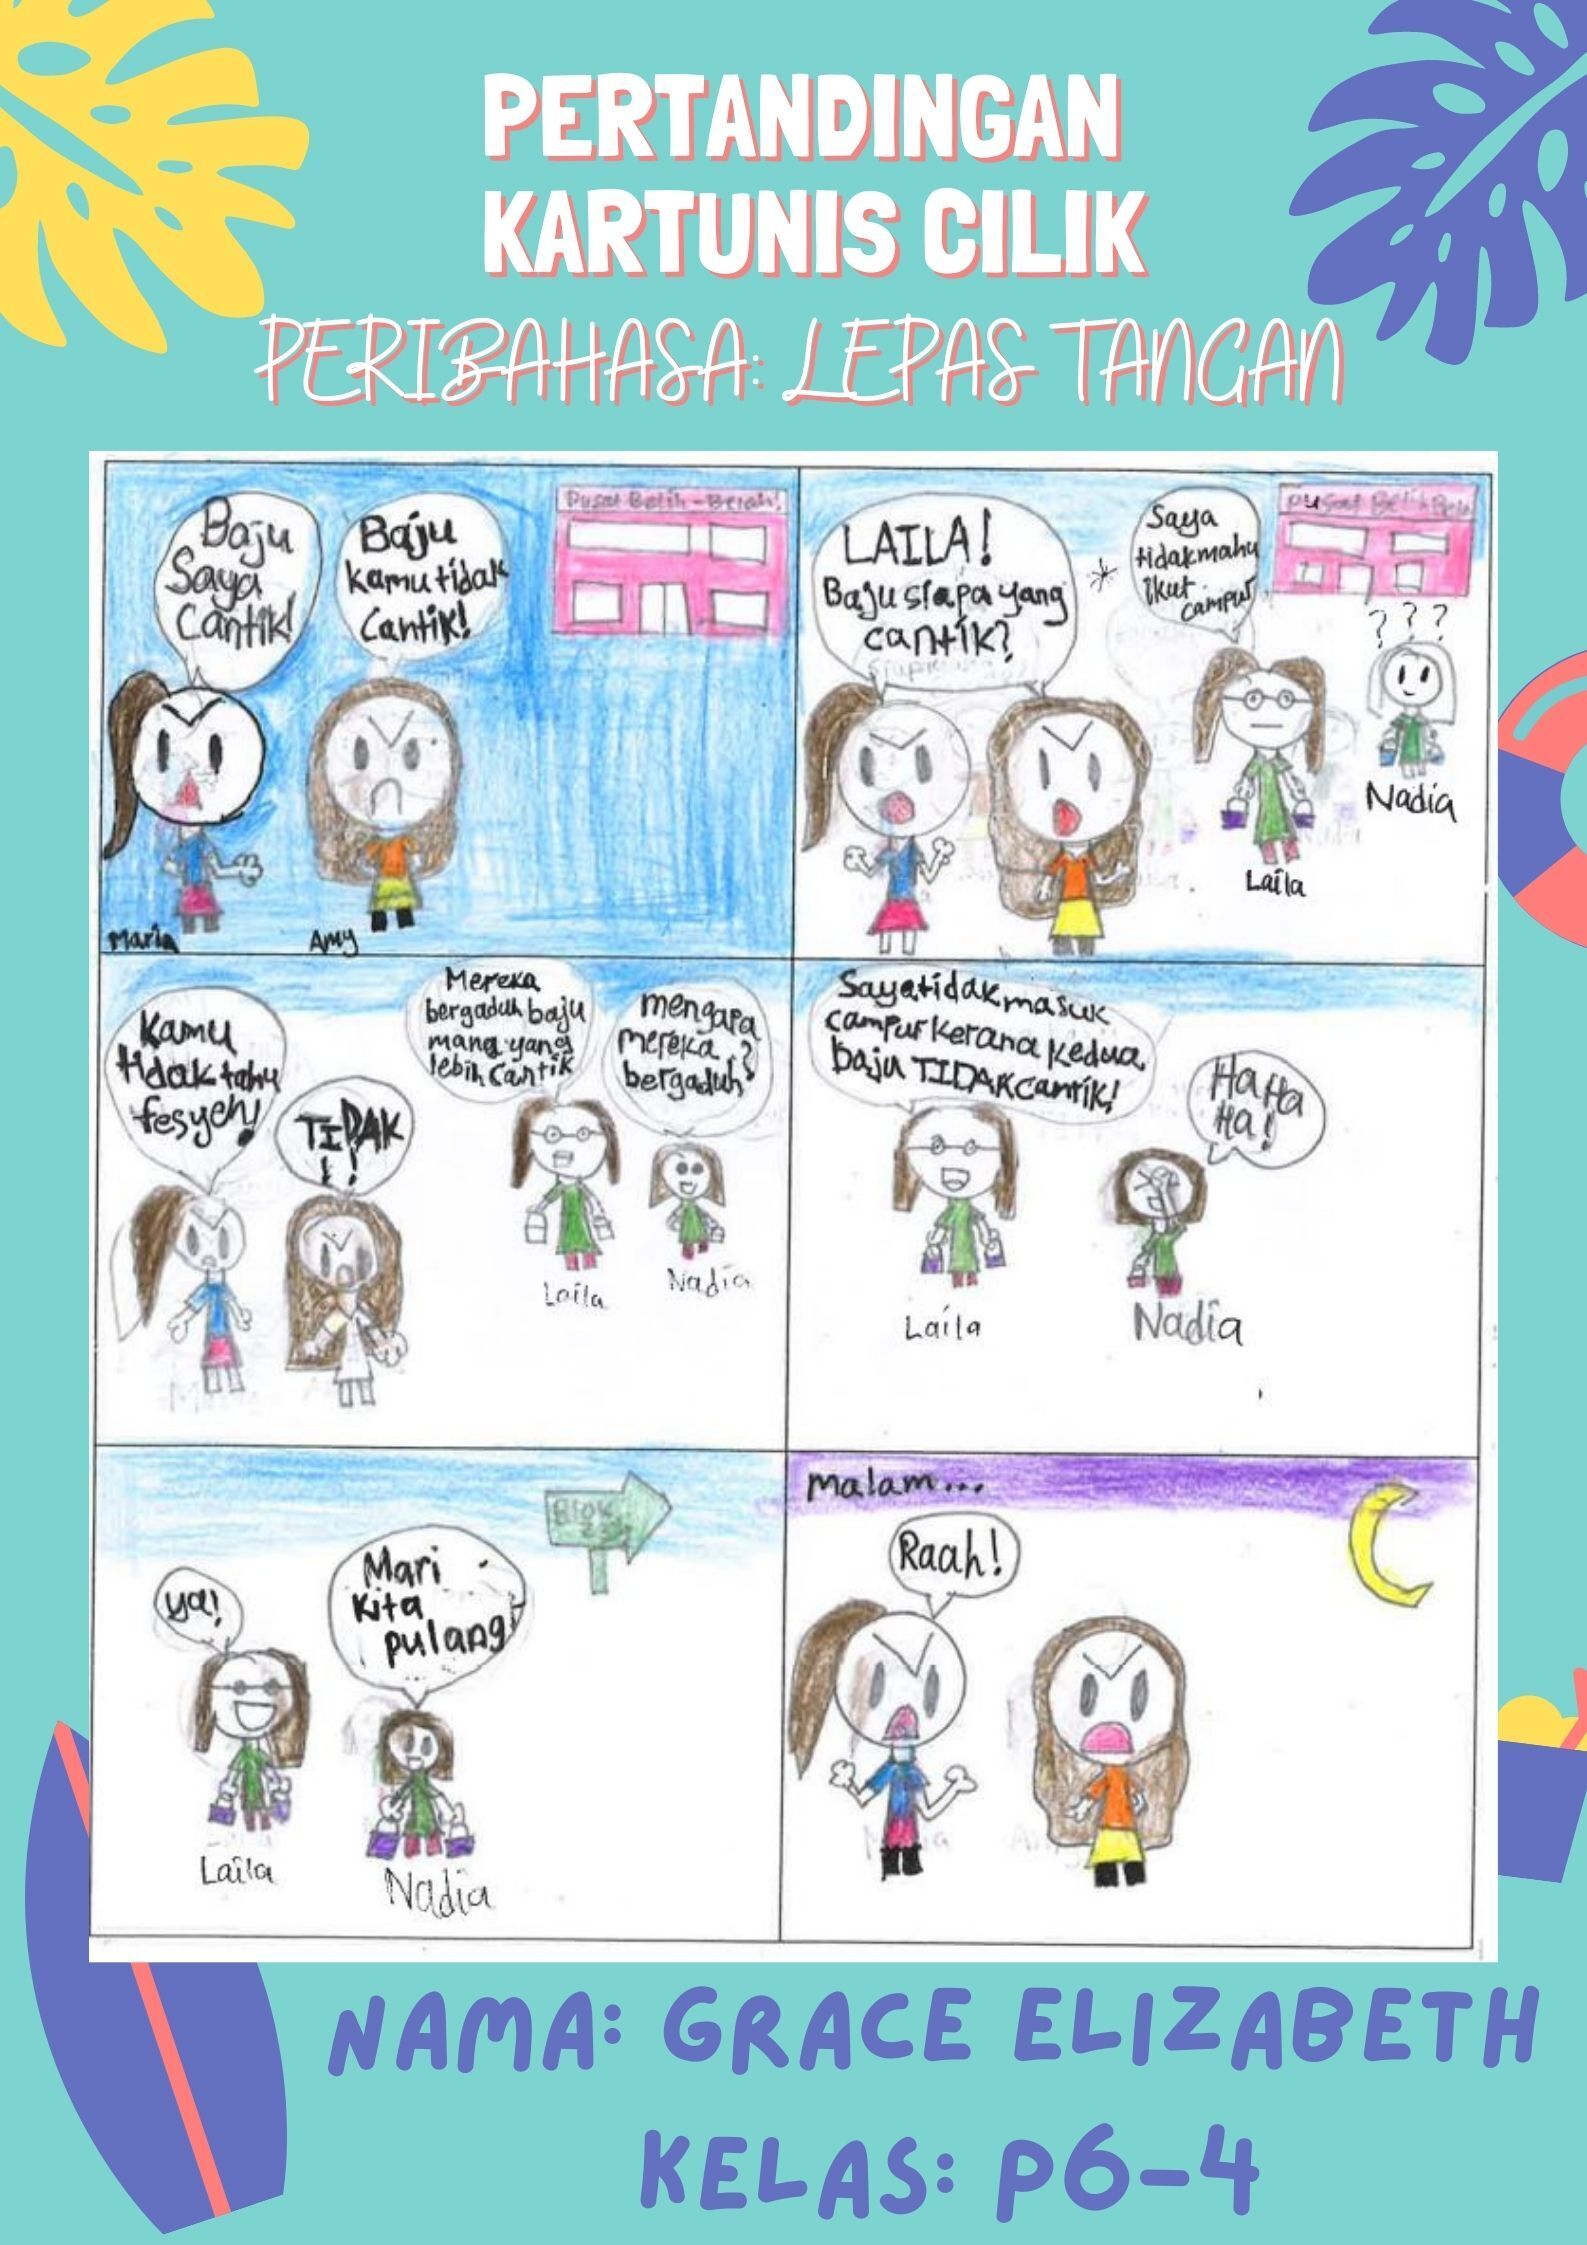 PERTANDINGAN
KARTUNIS CILIK
PERIBAHASA: LEPAS TANGAN
Baju
Saya
Cantik!
Baju
kamu tidak
Cantik!
Pusat Belih-Belah!
Maria
Amy
LAILA!
Baju siapa yang
cantik?
Saya
tidak mahu
ikut
campur
Pusat Belih Belah
???
Laila
Nadia
Kamu
tidak tahu
fesyen!
TIDAK
!!
Mereka
bergaduh baju
mana yang
lebih cantik
mengapa
mereka ?
bergaduh
Laila
Nadia
Saya tidak masuk
campur kerana kedua
baju TIDAK cantik!
Ha Ha
Ha!
Laila
Nadia
ya!
Mari
kita
pulang
...
Blok
Laila
Nadia
Malam...
Raah!
NAMA: GRACE ELIZABETH
KELAS: P6-4